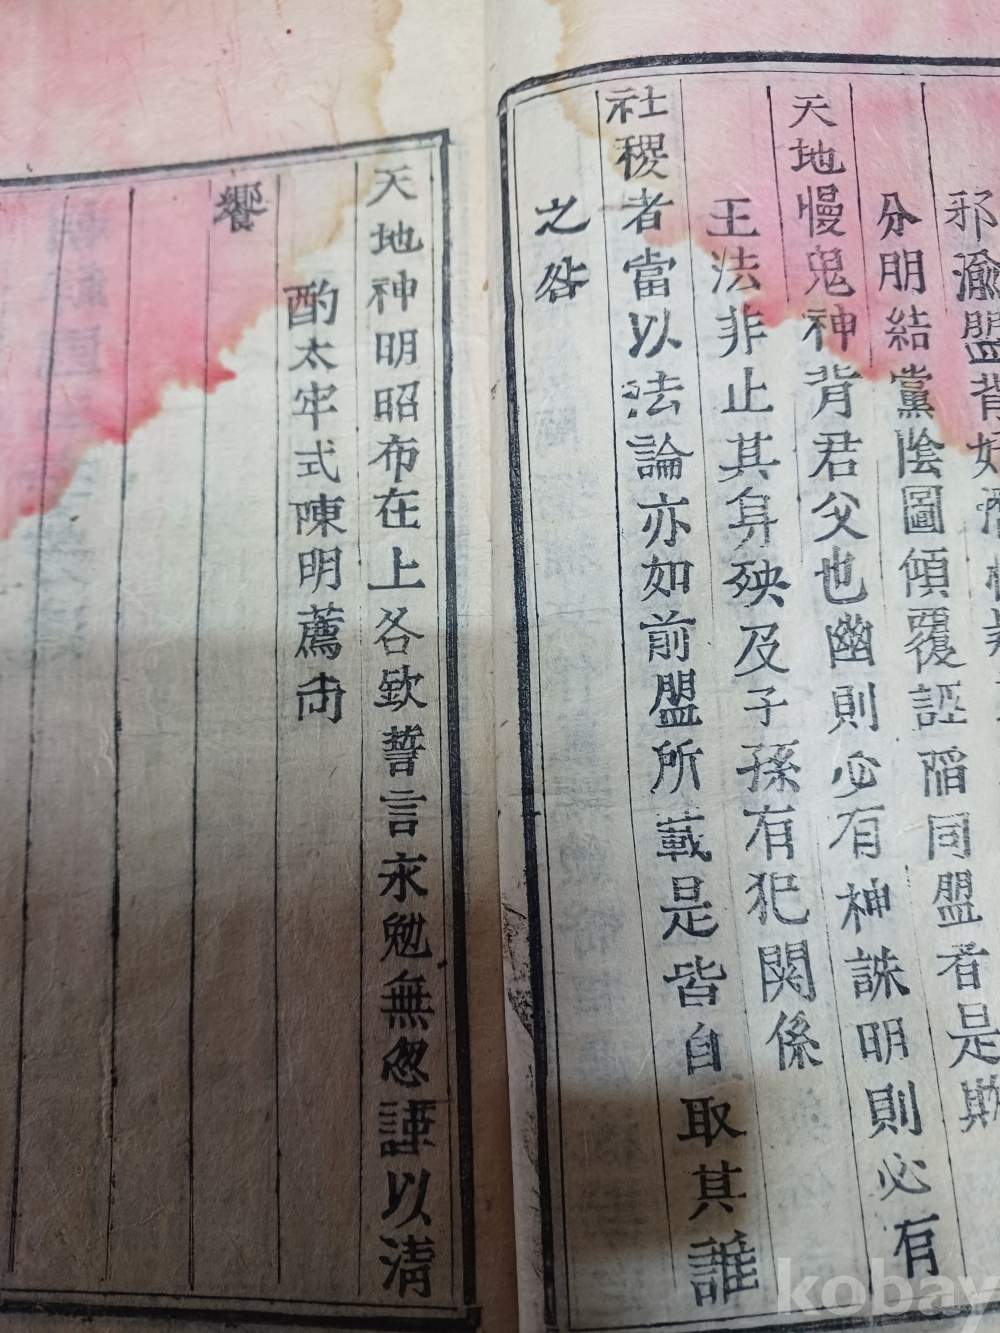 邪渝盟背好
分朋結黨陰圖傾覆誣陷同盟者是欺
天地慢鬼神背君父也幽則必有神誅明則必有
王法非止其身殃及子孫有犯関係
社稷者當以法論亦如前盟所載是皆自取其誰
之咎
天地神明昭布在上各欽誓言永勉無忽謹以清
酌太牢式陳明薦尚
饗
kobay